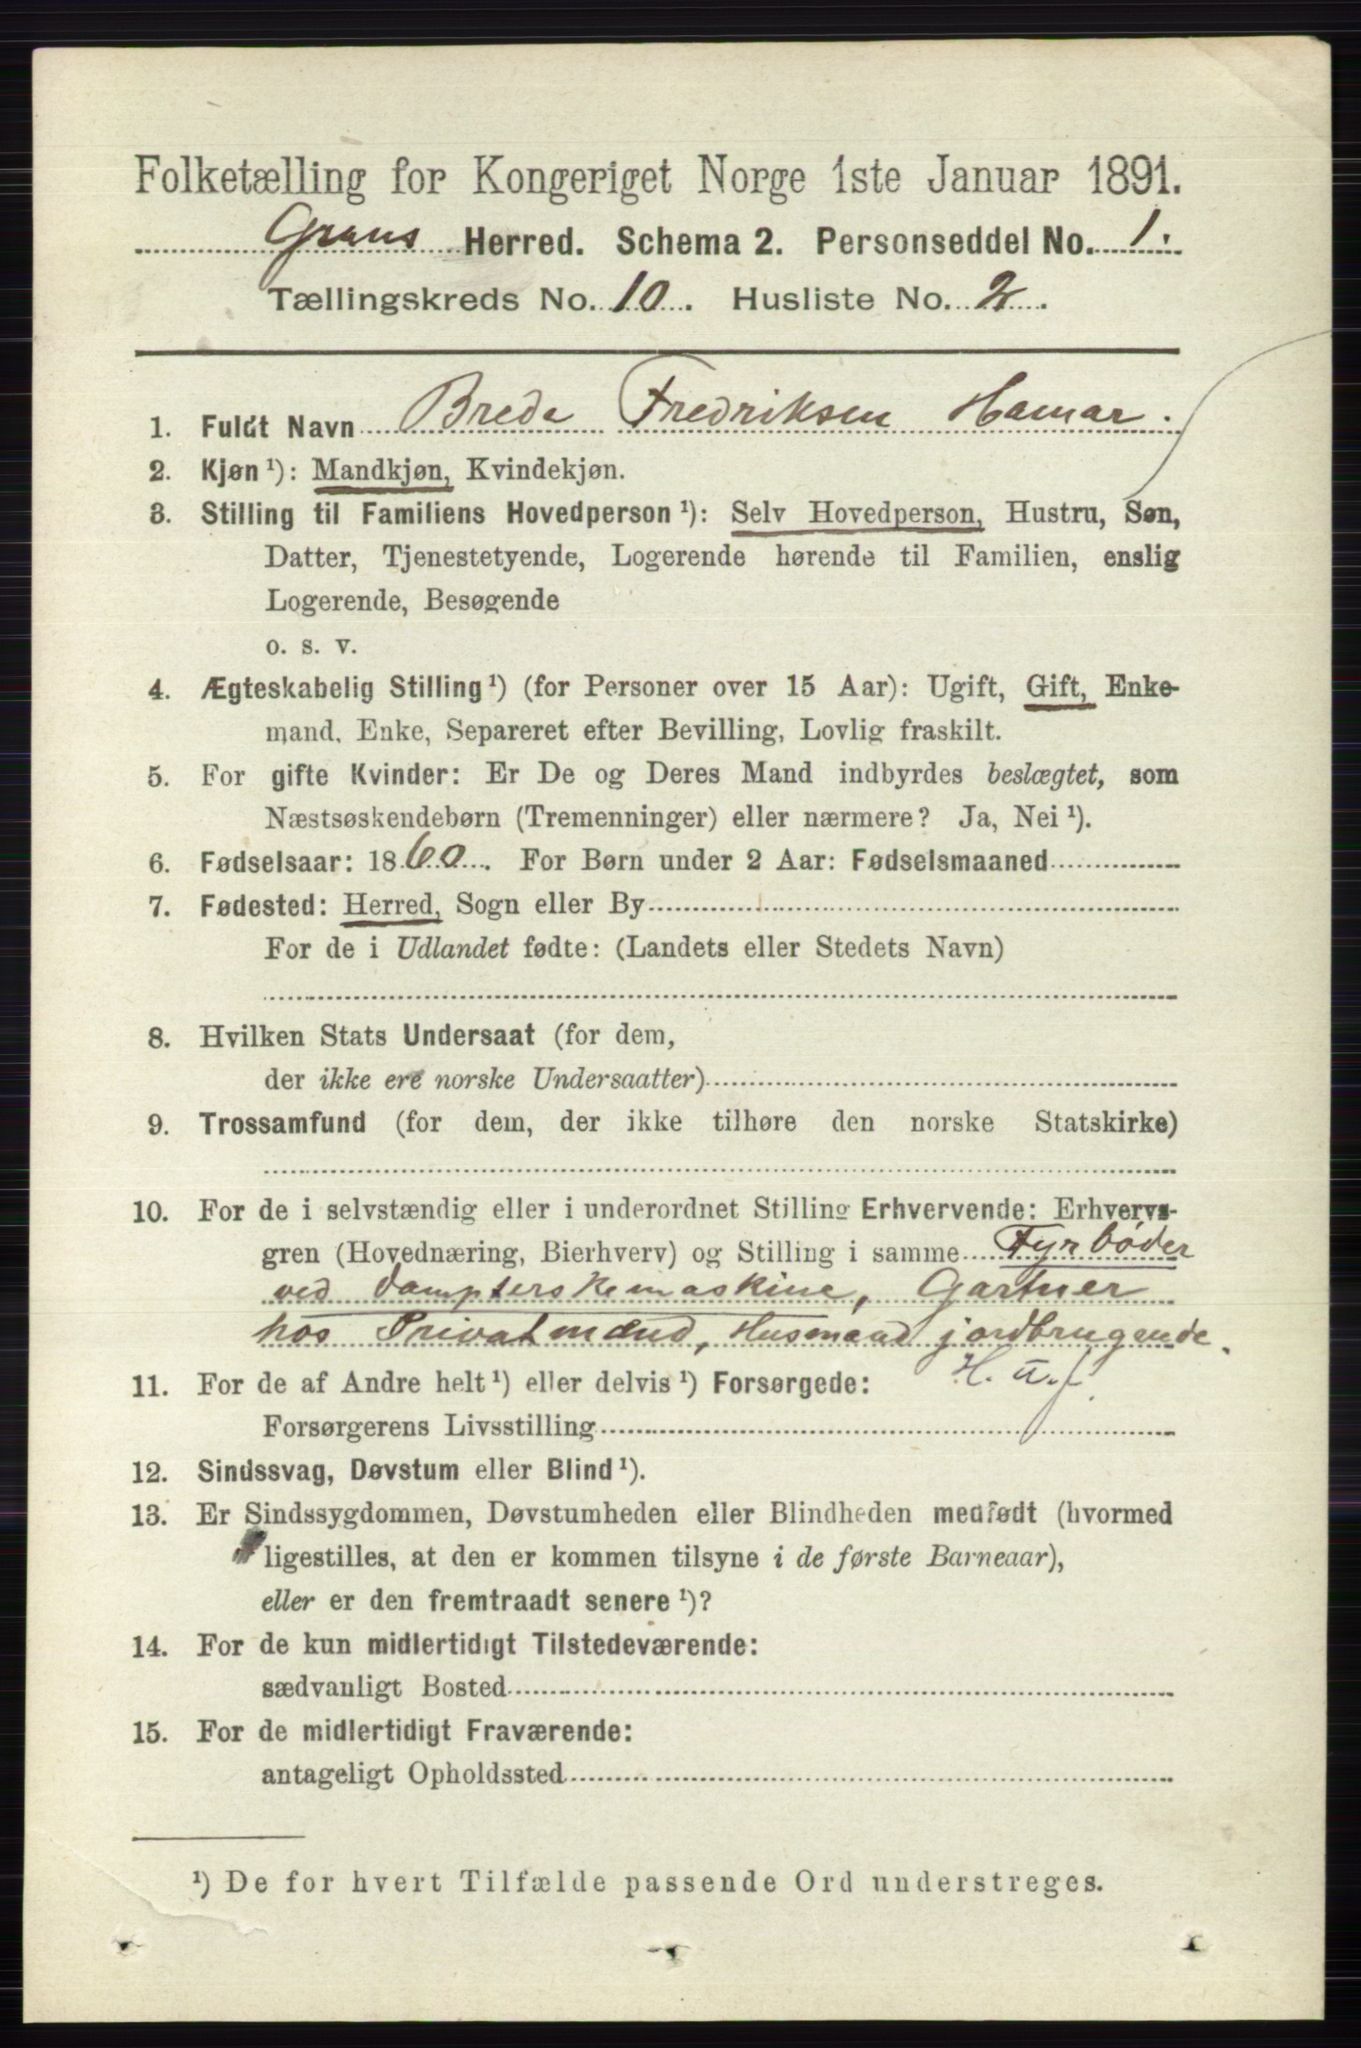 Folketælling for Kongeriget Norge 1ste Januar 1891.
Grans Herred. Schema 2. Personseddel No. 1.
Tællingskreds No. 10. Husliste No. 2.
1. Fuldt Navn Brede Fredriksen Hamar.
2. Kjøn ¹): Mandkjøn, Kvindekjøn.
3. Stilling til Familiens Hovedperson ¹): Selv Hovedperson, Hustru, Søn,
Datter, Tjenestetyende, Logerende hørende til Familien, enslig
Logerende, Besøgende
o. s. v.
4. Ægteskabelig Stilling ¹) (for Personer over 15 Aar): Ugift, Gift, Enke-
mand, Enke, Separeret efter Bevilling, Lovlig fraskilt.
5. For gifte Kvinder: Er De og Deres Mand indbyrdes beslægtet, som
Næstsøskendebørn (Tremenninger) eller nærmere? Ja, Nei ¹).
6. Fødselsaar: 1860. For Børn under 2 Aar: Fødselsmaaned
7. Fødested: Herred, Sogn eller By
For de i Udlandet fødte: (Landets eller Stedets Navn)
8. Hvilken Stats Undersaat (for dem,
der ikke ere norske Undersaatter)
9. Trossamfund (for dem, der ikke tilhøre den norske Statskirke)
10. For de i selvstændig eller i underordnet Stilling Erhvervende: Erhvervs-
gren (Hovednæring, Bierhverv) og Stilling i samme Fyrbøder
ved dampterskemaskine, Gartner
hos Privatmænd, Husmand jordbrugende.
H. u. j.
11. For de af Andre helt ¹) eller delvis ¹) Forsørgede:
Forsørgerens Livsstilling
12. Sindssvag, Døvstum eller Blind ¹).
13. Er Sindssygdommen, Døvstumheden eller Blindheden medfødt (hvormed
ligestilles, at den er kommen tilsyne i de første Barneaar),
eller er den fremtraadt senere ¹)?
14. For de kun midlertidigt Tilstedeværende:
sædvanligt Bosted
15. For de midlertidigt Fraværende:
antageligt Opholdssted
¹) De for hvert Tilfælde passende Ord understreges.